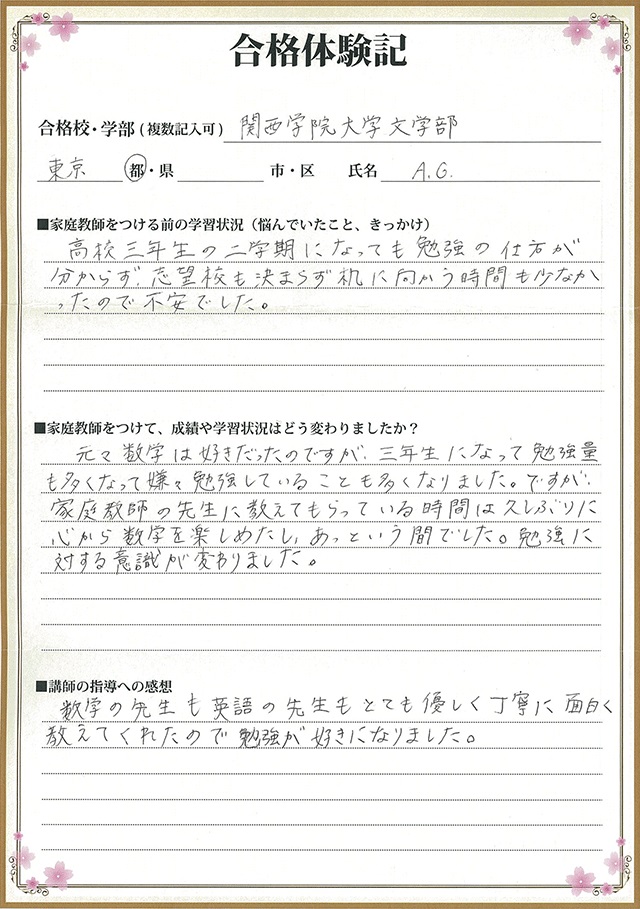 合格体験記
合格校・学部(複数記入可) 関西学院大学文学部
東京 都・県 市・区 氏名 A.G.
■家庭教師をつける前の学習状況（悩んでいたこと、きっかけ）
高校三年生の二学期になっても勉強の仕方が
分からず、志望校も決まらず机に向かう時間も少なか
ったので不安でした。
■家庭教師をつけて、成績や学習状況はどう変わりましたか？
元々数学は好きだったのですが、三年生になって勉強量
も多くなって嫌々勉強していることも多くなりました。ですが、
家庭教師の先生に教えてもらっている時間は久しぶりに
心から数学を楽しめたし、あっという間でした。勉強に
対する意識が変わりました。
■講師の指導への感想
数学の先生も英語の先生もとても優しく丁寧に面白く
教えてくれたので勉強が好きになりました。